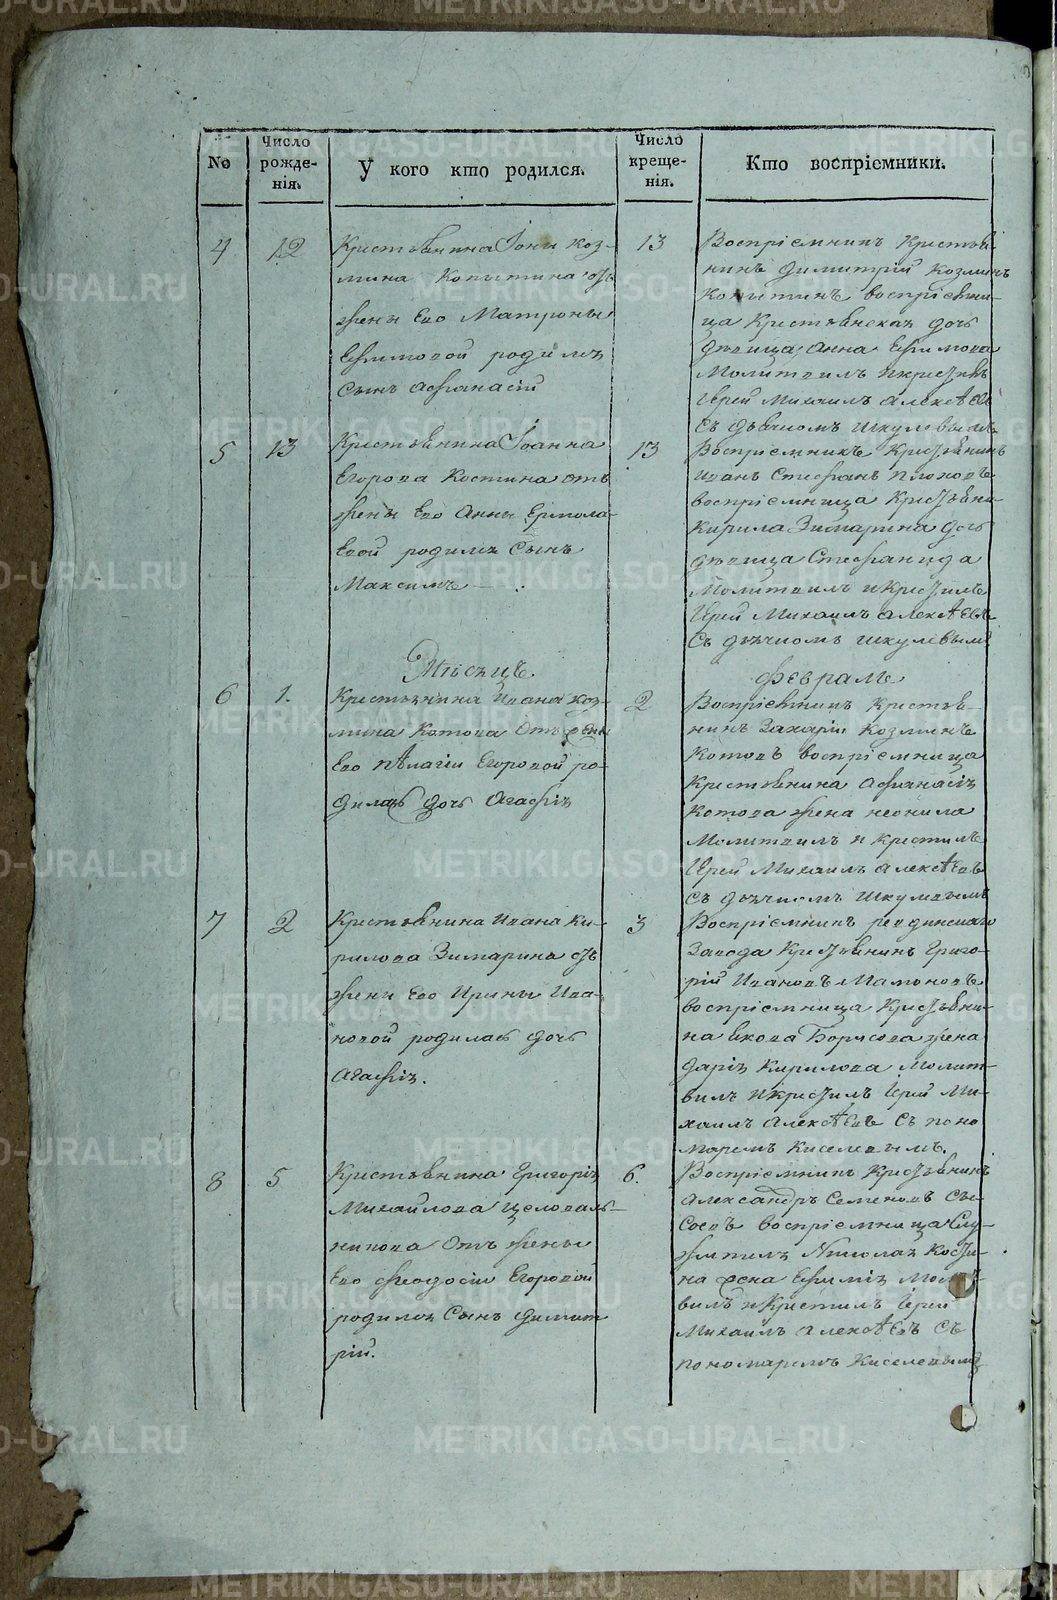 No
Число рожде-нія.
У кого кто родился.
Число креще-нія.
Кто воспріемники.
4
12
Крестьянина Іоны Коз-
мина Копытина отъ
жены Его Матроны
Ефимовой родился
сынъ Афанасій
13
Воспріемникъ Крестья-
нинъ Димитрій Козминъ
Копытинъ воспріемни-
ца Крестьянская дочь
девица Анна Ефимова
Молитвилъ и крестилъ
Іерей Михаилъ Алексѣевъ
съ дьячкомъ Шкулевымъ
5
13
Крестьянина Іоанна
Егорова Костина отъ
жены Его Анны Ермола-
евой родился сынъ
Максимъ
13
Воспріемникъ Крестьянинъ
Иванъ Стефанъ
воспріемница Крестьяни-
Кирила Зимарина дочь
девица Стефанида
Молитвилъ и Крестилъ
Іерей Михаилъ Алексѣевъ
съ дьячкомъ Шкулевымъ
Мѣсяцъ
Февраль
6
1.
Крестьянина Ивана Коз-
мина Котова Отъ жены
Его Пѣлагіи Егоровой ро-
дилась дочь Агафія
2
Воспріемникъ Крестья-
нинъ Захарій Козминъ
Котовъ воспріемница
Крестьянина Афанасія
Котова жена Неонила
Молитвилъ и Крестилъ
Іерей Михаилъ Алексѣевъ
съ дьячкомъ Шкулевымъ
7
2
Крестьянина Ивана Ки-
рилова Зимарина отъ
жены Его Ирины Ива-
новой родилась дочь
Агафія.
3
Воспріемникъ ревдинскаго
Завода Крестьянинъ Григо-
рій Ивановъ Мамоновъ
воспріемница Крестьяни-
на Якова Борисова жена
Дарія Кирилова Молит-
вилъ и крестилъ Іерей Ми-
хаилъ Алексѣевъ съ поно-
маремъ Киселевымъ.
8
5
Крестьянина Григорія
Михайлова Целоваль-
никова Отъ жены
Его Феодосіи Егоровой
родился Сынъ Димит
рій.
6.
Воспріемникъ Крестьянинъ
Александръ Семеновъ Сы-
соевъ воспріемница Слу-
жителя Николая Кости-
на жена Ефимія
вилъ и Крестилъ Іерей
Михаилъ Алексѣевъ Съ
пономаремъ Киселевымъ
METRIKI.GASO-URAL.RU